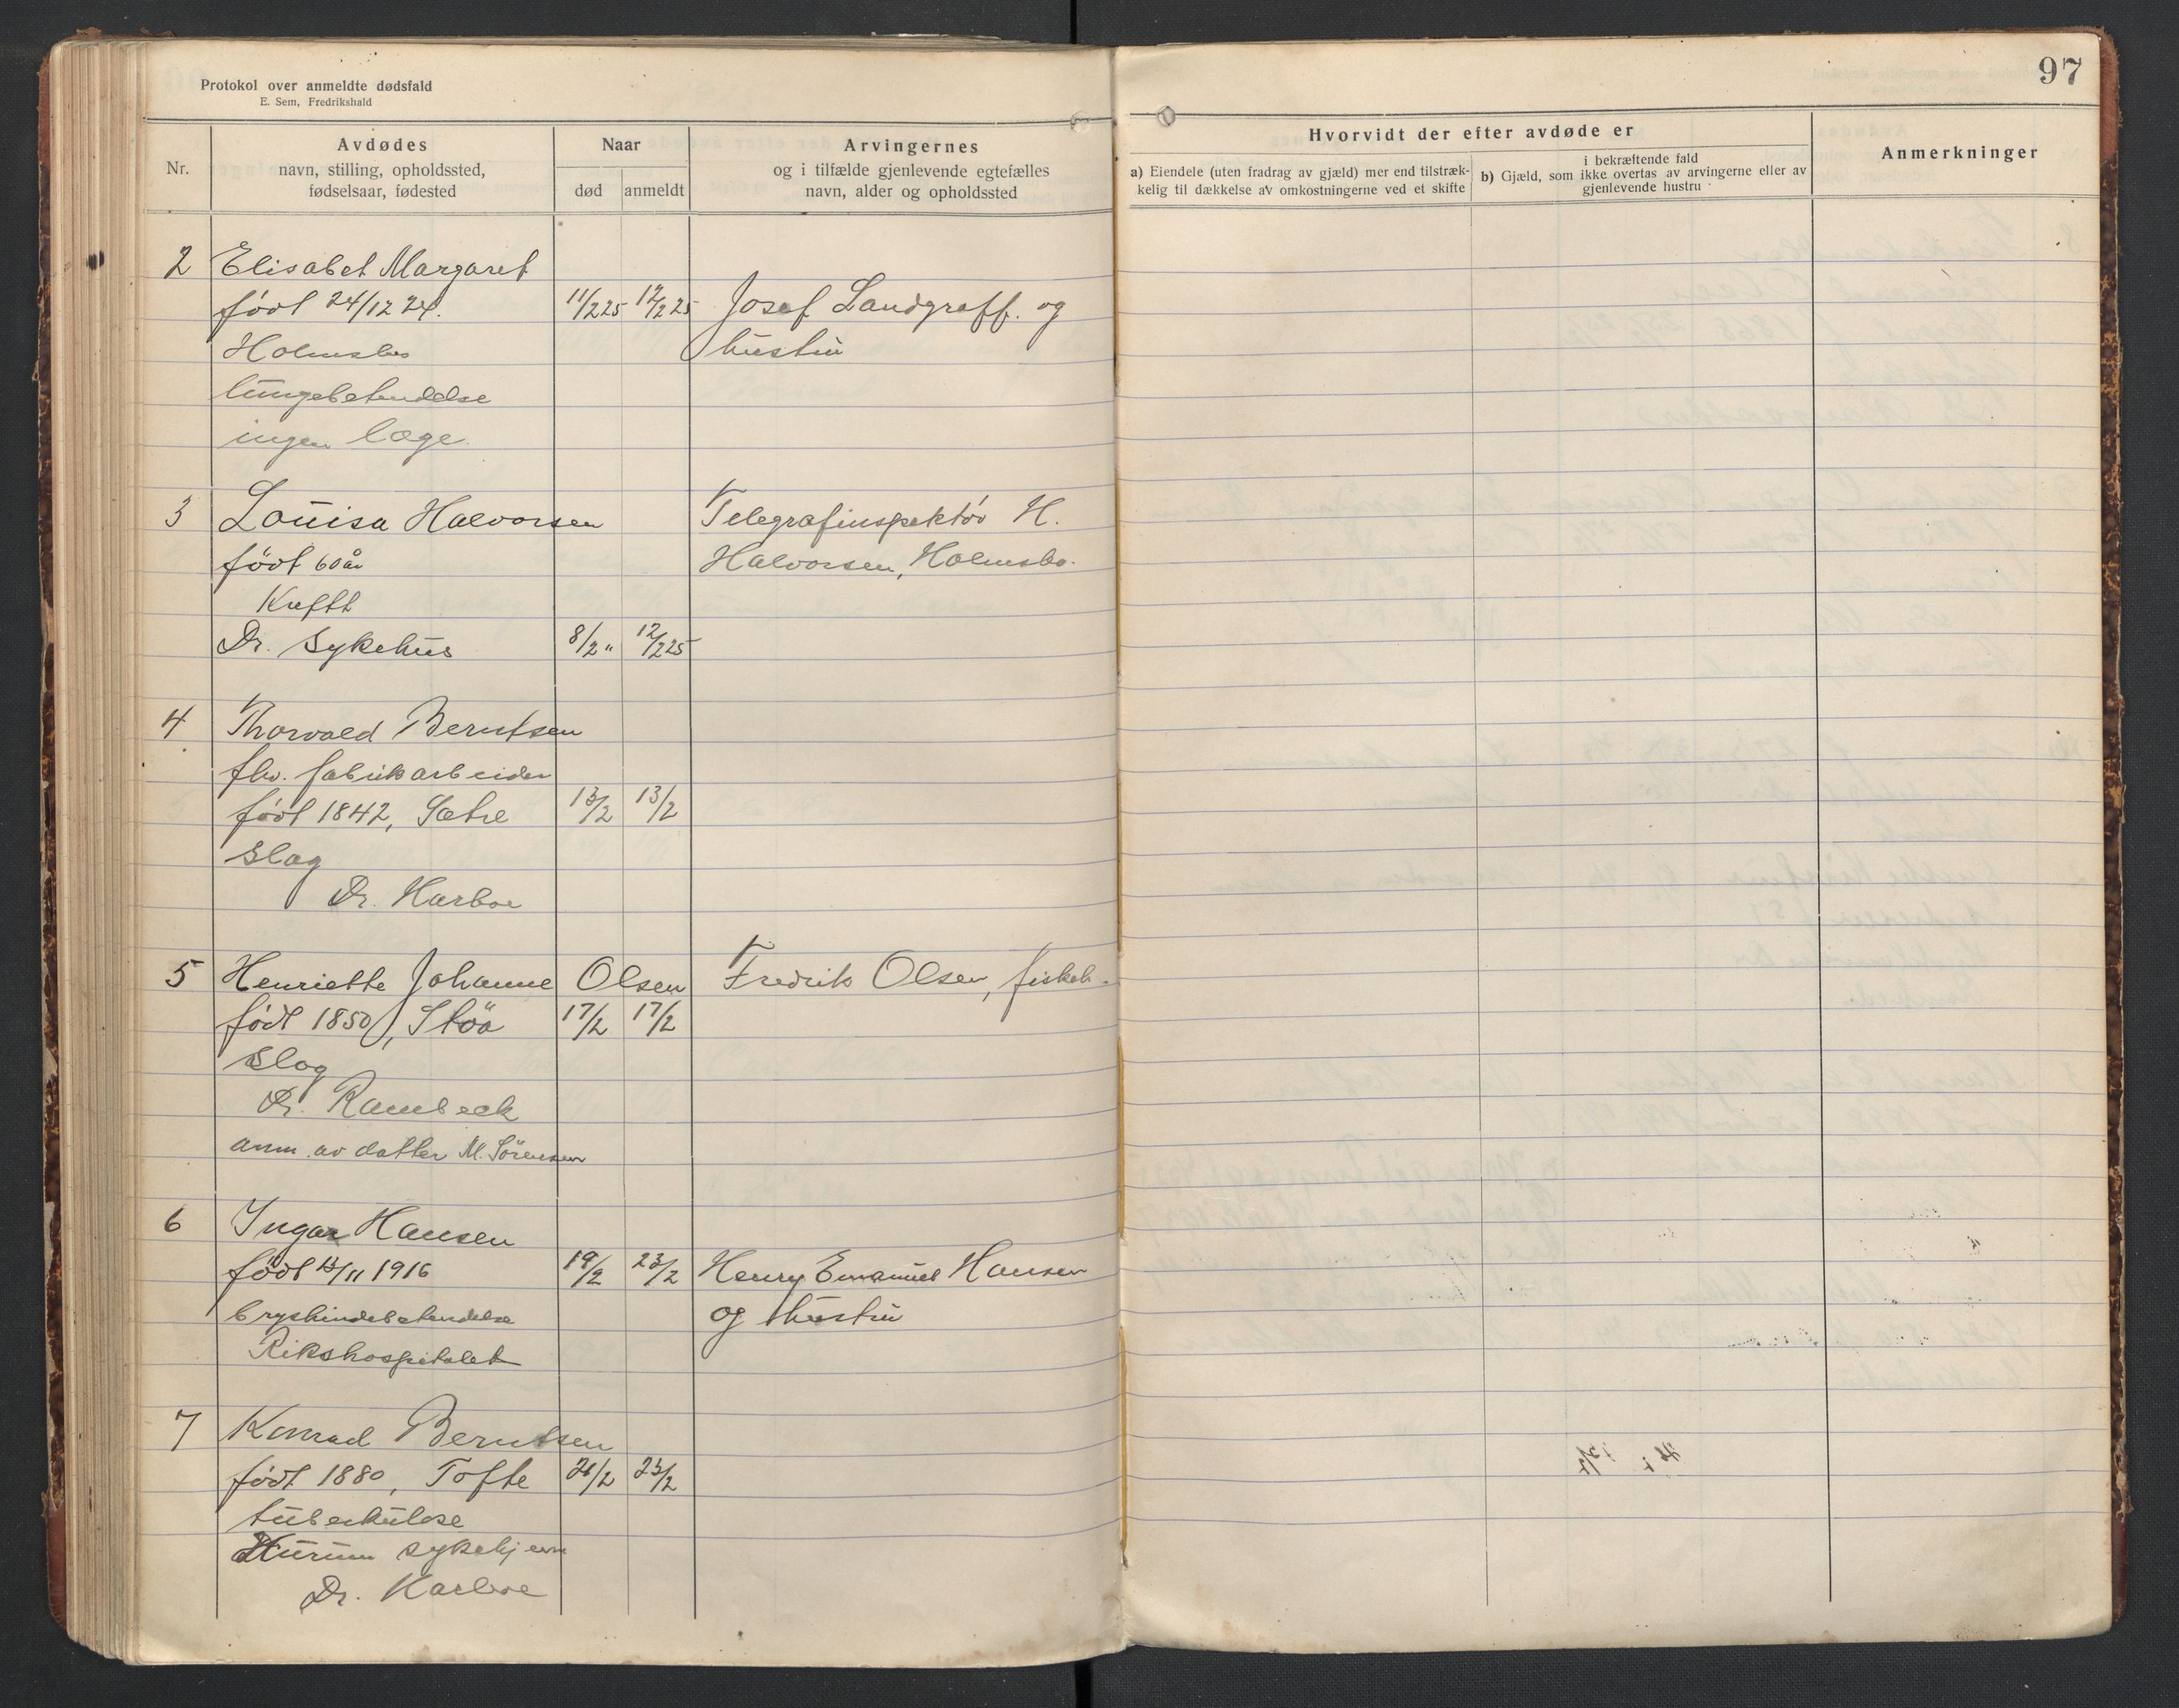 Protokol over anmeldte dødsfald
E. Sem, Fredrikshald
97
Nr.
Avdødes
navn, stilling, opholdssted,
fødselsaar, fødested
Naar
død
anmeldt
Arvingernes
og i tilfælde gjenlevende egtefælles
navn, alder og opholdssted
Hvorvidt der efter avdøde er
a) Eiendele (uten fradrag av gjæld) mer end tilstræk-
kelig til dækkelse av omkostningerne ved et skifte
i bekræftende fald
b) Gjæld, som ikke overtas av arvingerne eller av
gjenlevende hustru
Anmerkninger
2 Elisabet Margaret
født 24/12 24. 11/2 25 12/2 25 Josef Landgraff. og
Holmsbo hustru
lungebetendelse
ingen læge.
3 Louisa Halvorsen Telegrafinspektör H.
födt 60 år Halvorsen, Holmsbo.
Kreftt
Dr. Sykehus 8/2 " 12/2 25
4 Thorvald Berntsen
fhv. fabrikarbeider
född 1842, Sætre 13/2 13/2
slag
Dr. Harboe
5 Henriette Johanne Olsen Fredrik Olsen, fiskeh.
født 1850, Støa 17/2 17/2
slag
Dr. Rambeck
anm. av datter M. Sörensen
6 Ingar Hansen
født 13/11 1916 19/2 23/2 Henry Emanuel Hansen
bryshindebetendelse og hustru
Rikshospitalet
7 Konrad Berntsen
født 1880, Tofte 21/2 23/2
tuberkulose
Hurum sykehjem
Dr. Harboe